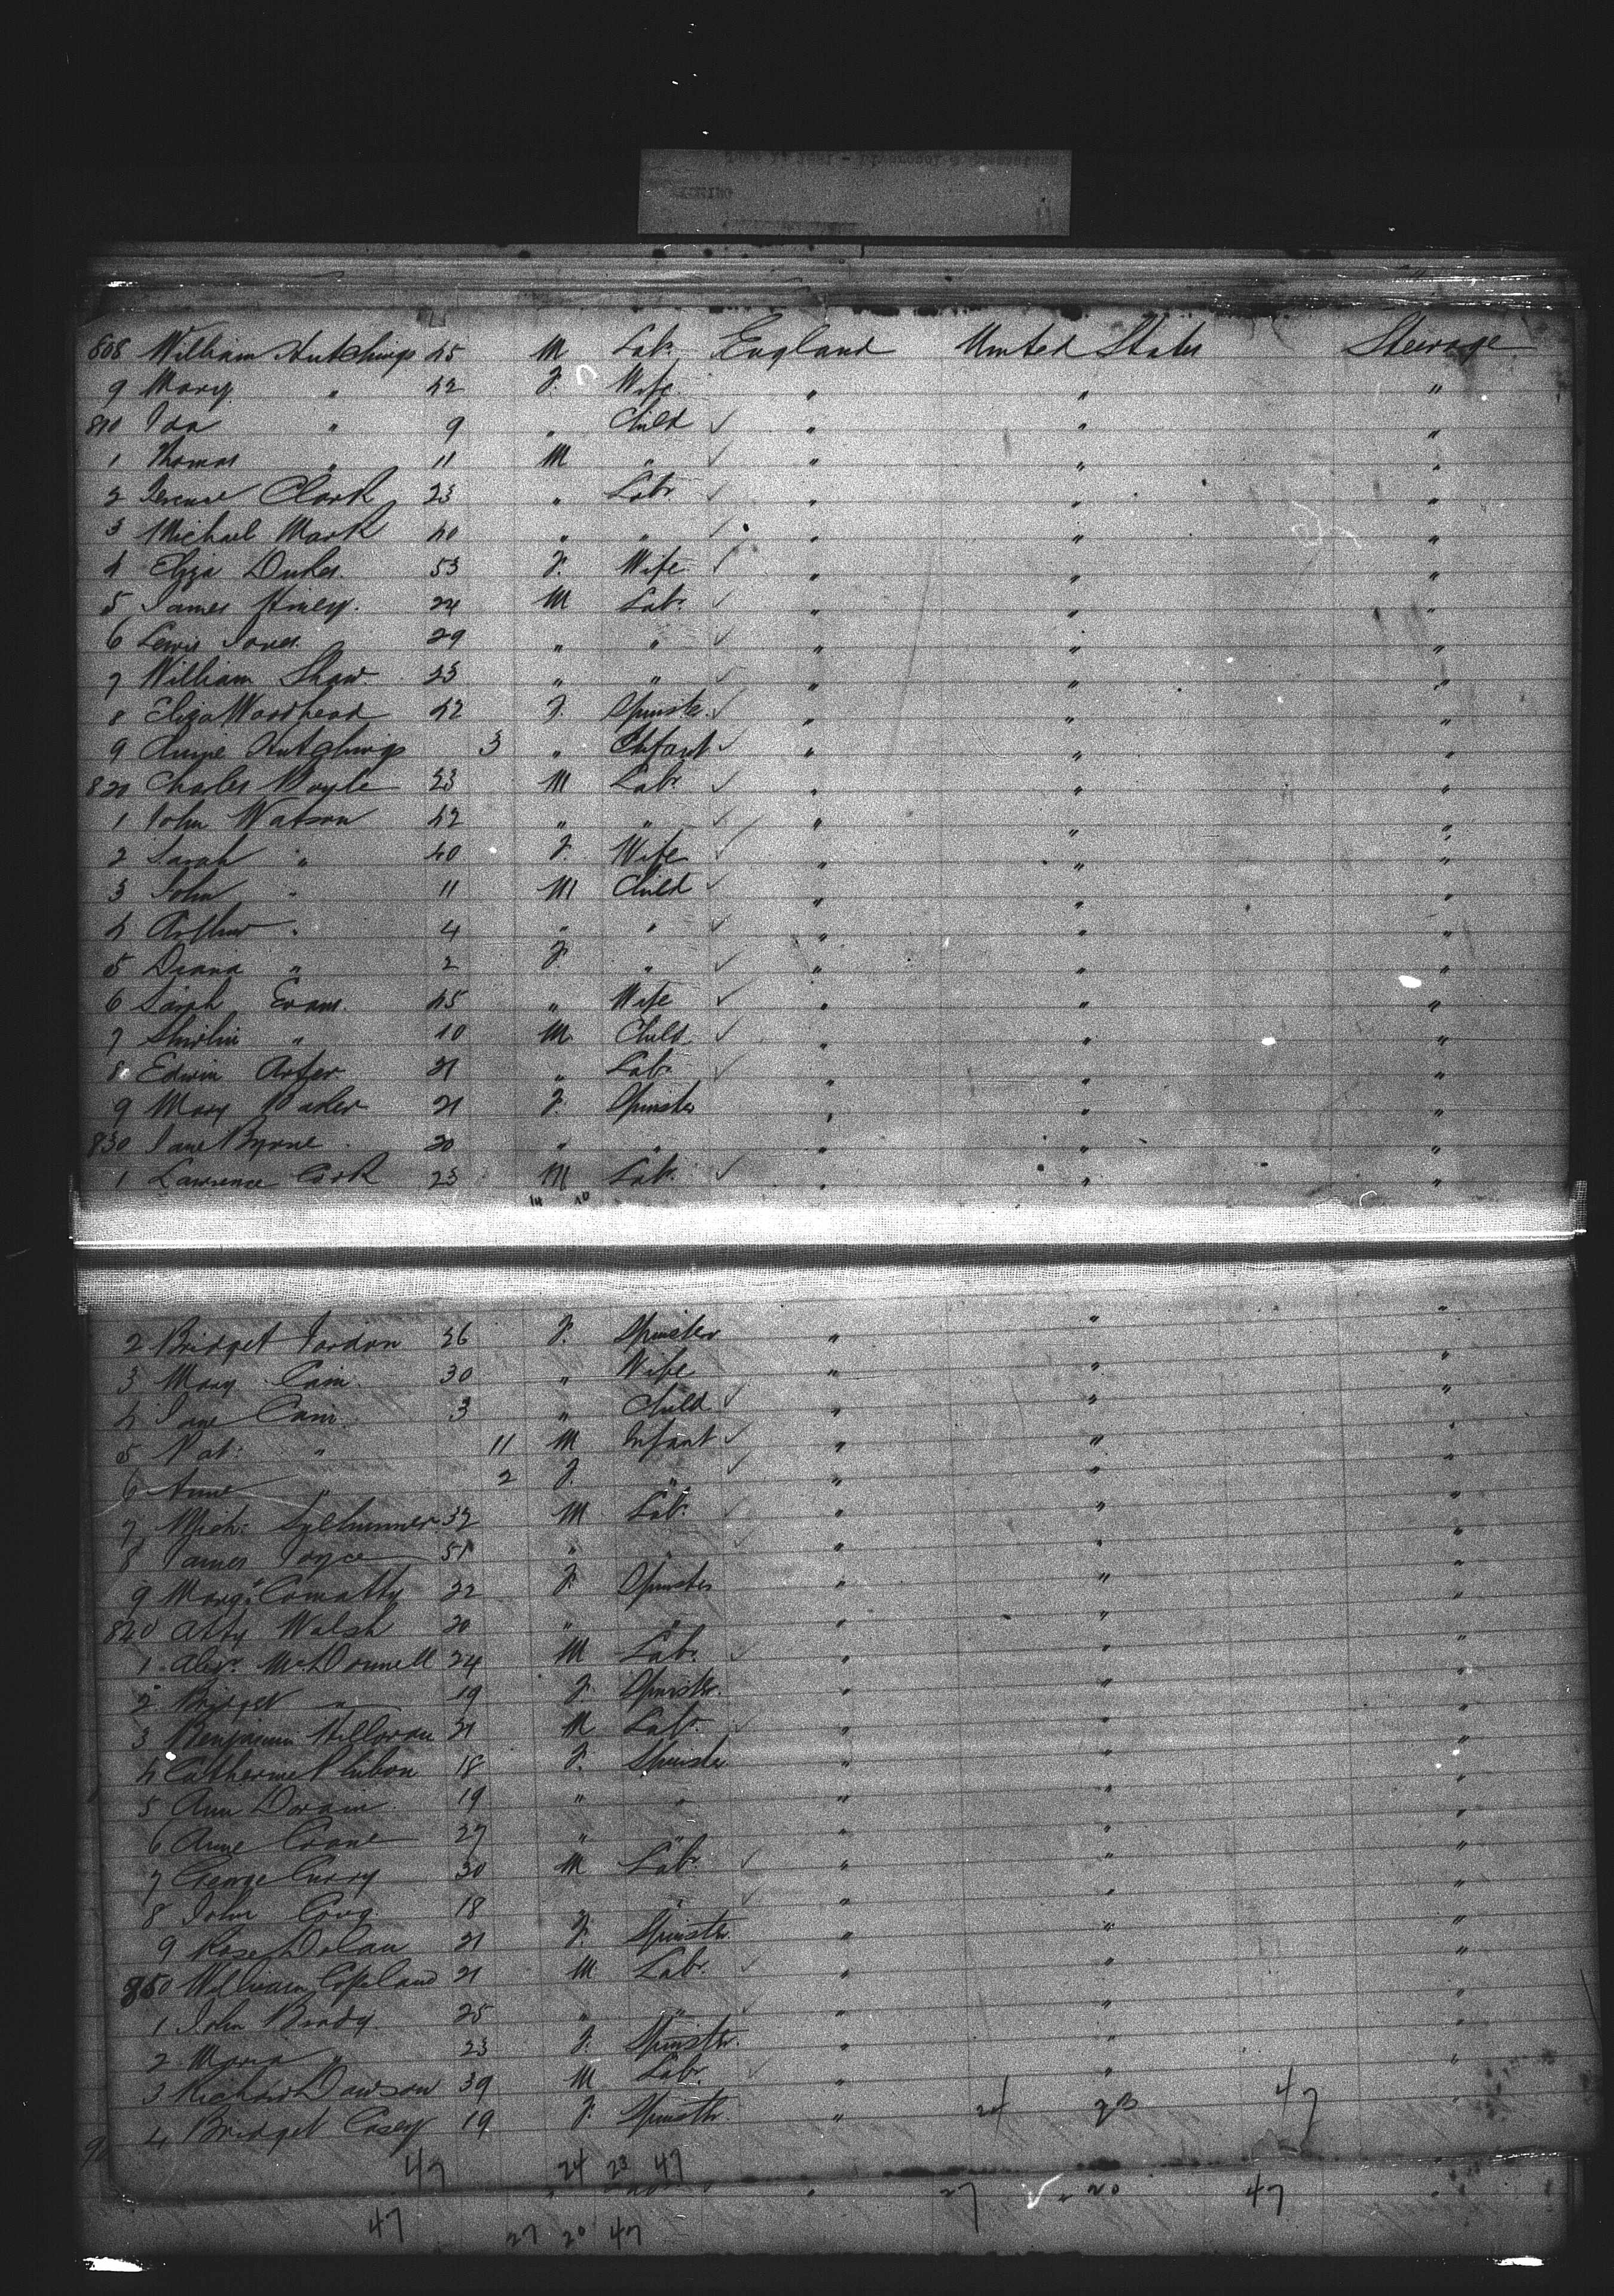 808 William Hutchings 45 M Lab. England United States Steerage
9 Mary " 42 F. Wife " " "
810 Ida " 9 " Child " " "
1 Thomas " 11 M " " " "
2 Clark 23 " Labr " " "
3 Michael Mark 40 " " " " "
4 Eliza Dukes 53 F. Wife " " "
5 James 24 M Lab. " " "
6 Lewis Jones 29 " " " " "
7 William Shaw 23 " " " " "
8 Eliza Woodhead 42 F. Spinster " " "
9 Hutchings 3 " Infant " " "
820 Charles Boyle 23 M Labr " " "
1 John Watson 42 " " " " "
2 Sarah " 40 F. Wife " " "
3 John " 11 M Child " " "
4 Arthur " 4 " " " " "
5 Diana " 2 F. " " " "
6 Sarah Evans 45 " Wife " " "
7 " 10 M Child " " "
8 Edwin 21 " Labr " " "
9 Mary 21 F Spinster " " "
830 Jane Byrne 20 " " " " "
1 Lawrence Cork 23 M Lab. " " "
14 10
2 Bridget Jordan 36 F. Spinster " " "
3 Mary Cain 30 " Wife " " "
4 Jane Cain 3 " Child " " "
5 Pat: " 11 M Infant " " "
6 Anne " 2 F. " " " "
7 Mich: 32 M Lab. " " "
8 James Joyce 51 " " " " "
9 Margt 22 F. Spinster " " "
840 Atty Walsh 20 " " " " "
1 Alexr. McDonnell 24 M Labr " " "
2 Bridget " 19 F. Spinster " " "
3 Benjamin 21 M Labr " " "
4 Catherine 18 F. Spinster " " "
5 Ann Doram 19 " " " " "
6 Anne Crane 27 " " " " "
7 George Curry 30 M Labr " " "
8 John 18 " " " "
9 Rose Dolan 21 F. Spinster " " "
850 William Copeland 21 M Labr. " " "
1 John Brady 25 " " " " "
2 Maria " 23 F. Spinster " " "
3 Richard Dawson 39 M Labr. " " "
4 Bridget Casey 19 F. Spinster " 24 23 47
47 24 23 47
27 20 47
47 27 20 47